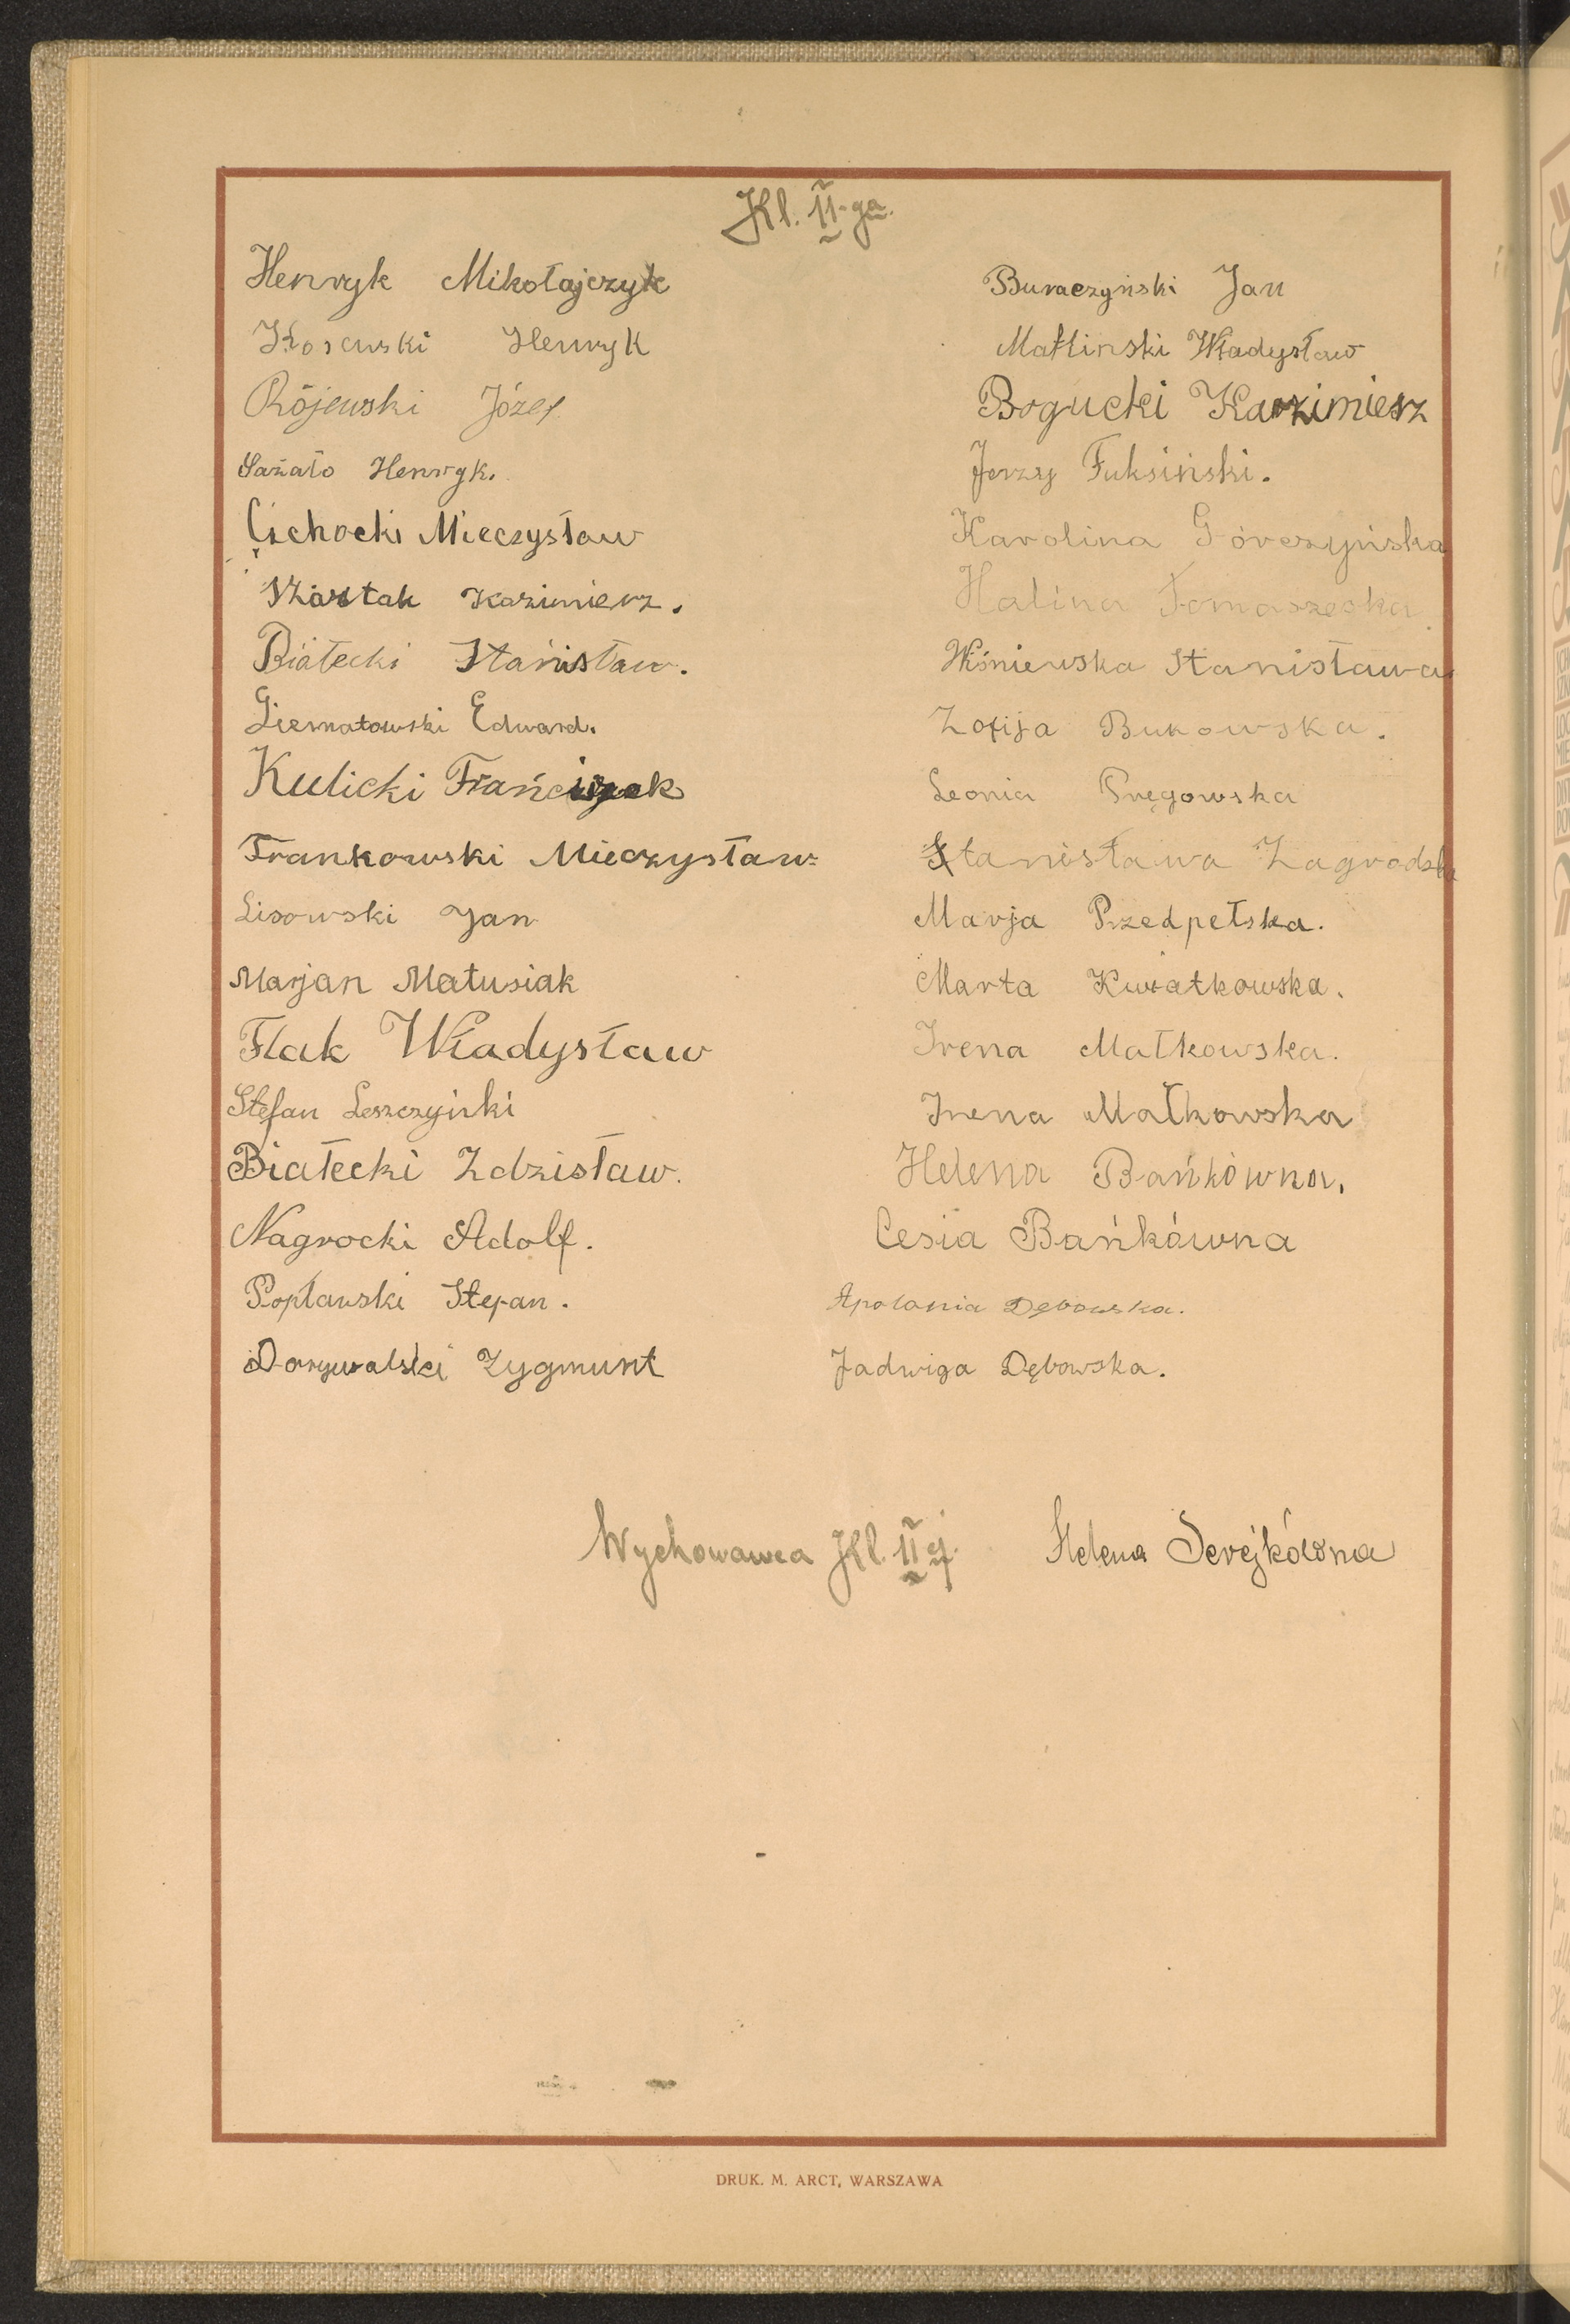 Kl. II-ga.
Henryk Mikołajczyk
Kosewski Henryk
Rójewski Józef
Sażało Henryk.
Cichocki Mieczysław
Kazimierz.
Białecki Stanisław.
Edward.
Kulicki Franciszek
Frankowski Mieczysław
Lisowski Jan
Marjan Matusiak
Flak Władysław
Stefan Leszczyński
Białecki Zdzisław.
Nagrocki Adolf.
Popławski Stefan.
Dorywalski Zygmunt
Buraczyński Jan
Matliński Władysław
Bogucki Kazimierz
Jerzy Fuksiński.
Karolina Górczyńska
Halina Tomaszeska.
Wiśniewska Stanisława
Zofija Bukowska.
Leonia Pręgowska
Stanisława Zagrodzka
Marja Przedpełska.
Marta Kwiatkowska.
Irena Małkowska.
Irena Małkowska
Helena Bańkówna.
Cesia Bańkówna
Apolonia Dębowska.
Jadwiga Dębowska.
Wychowawca Kl. II ej. Helena Derejkówna
DRUK. M. ARCT, WARSZAWA